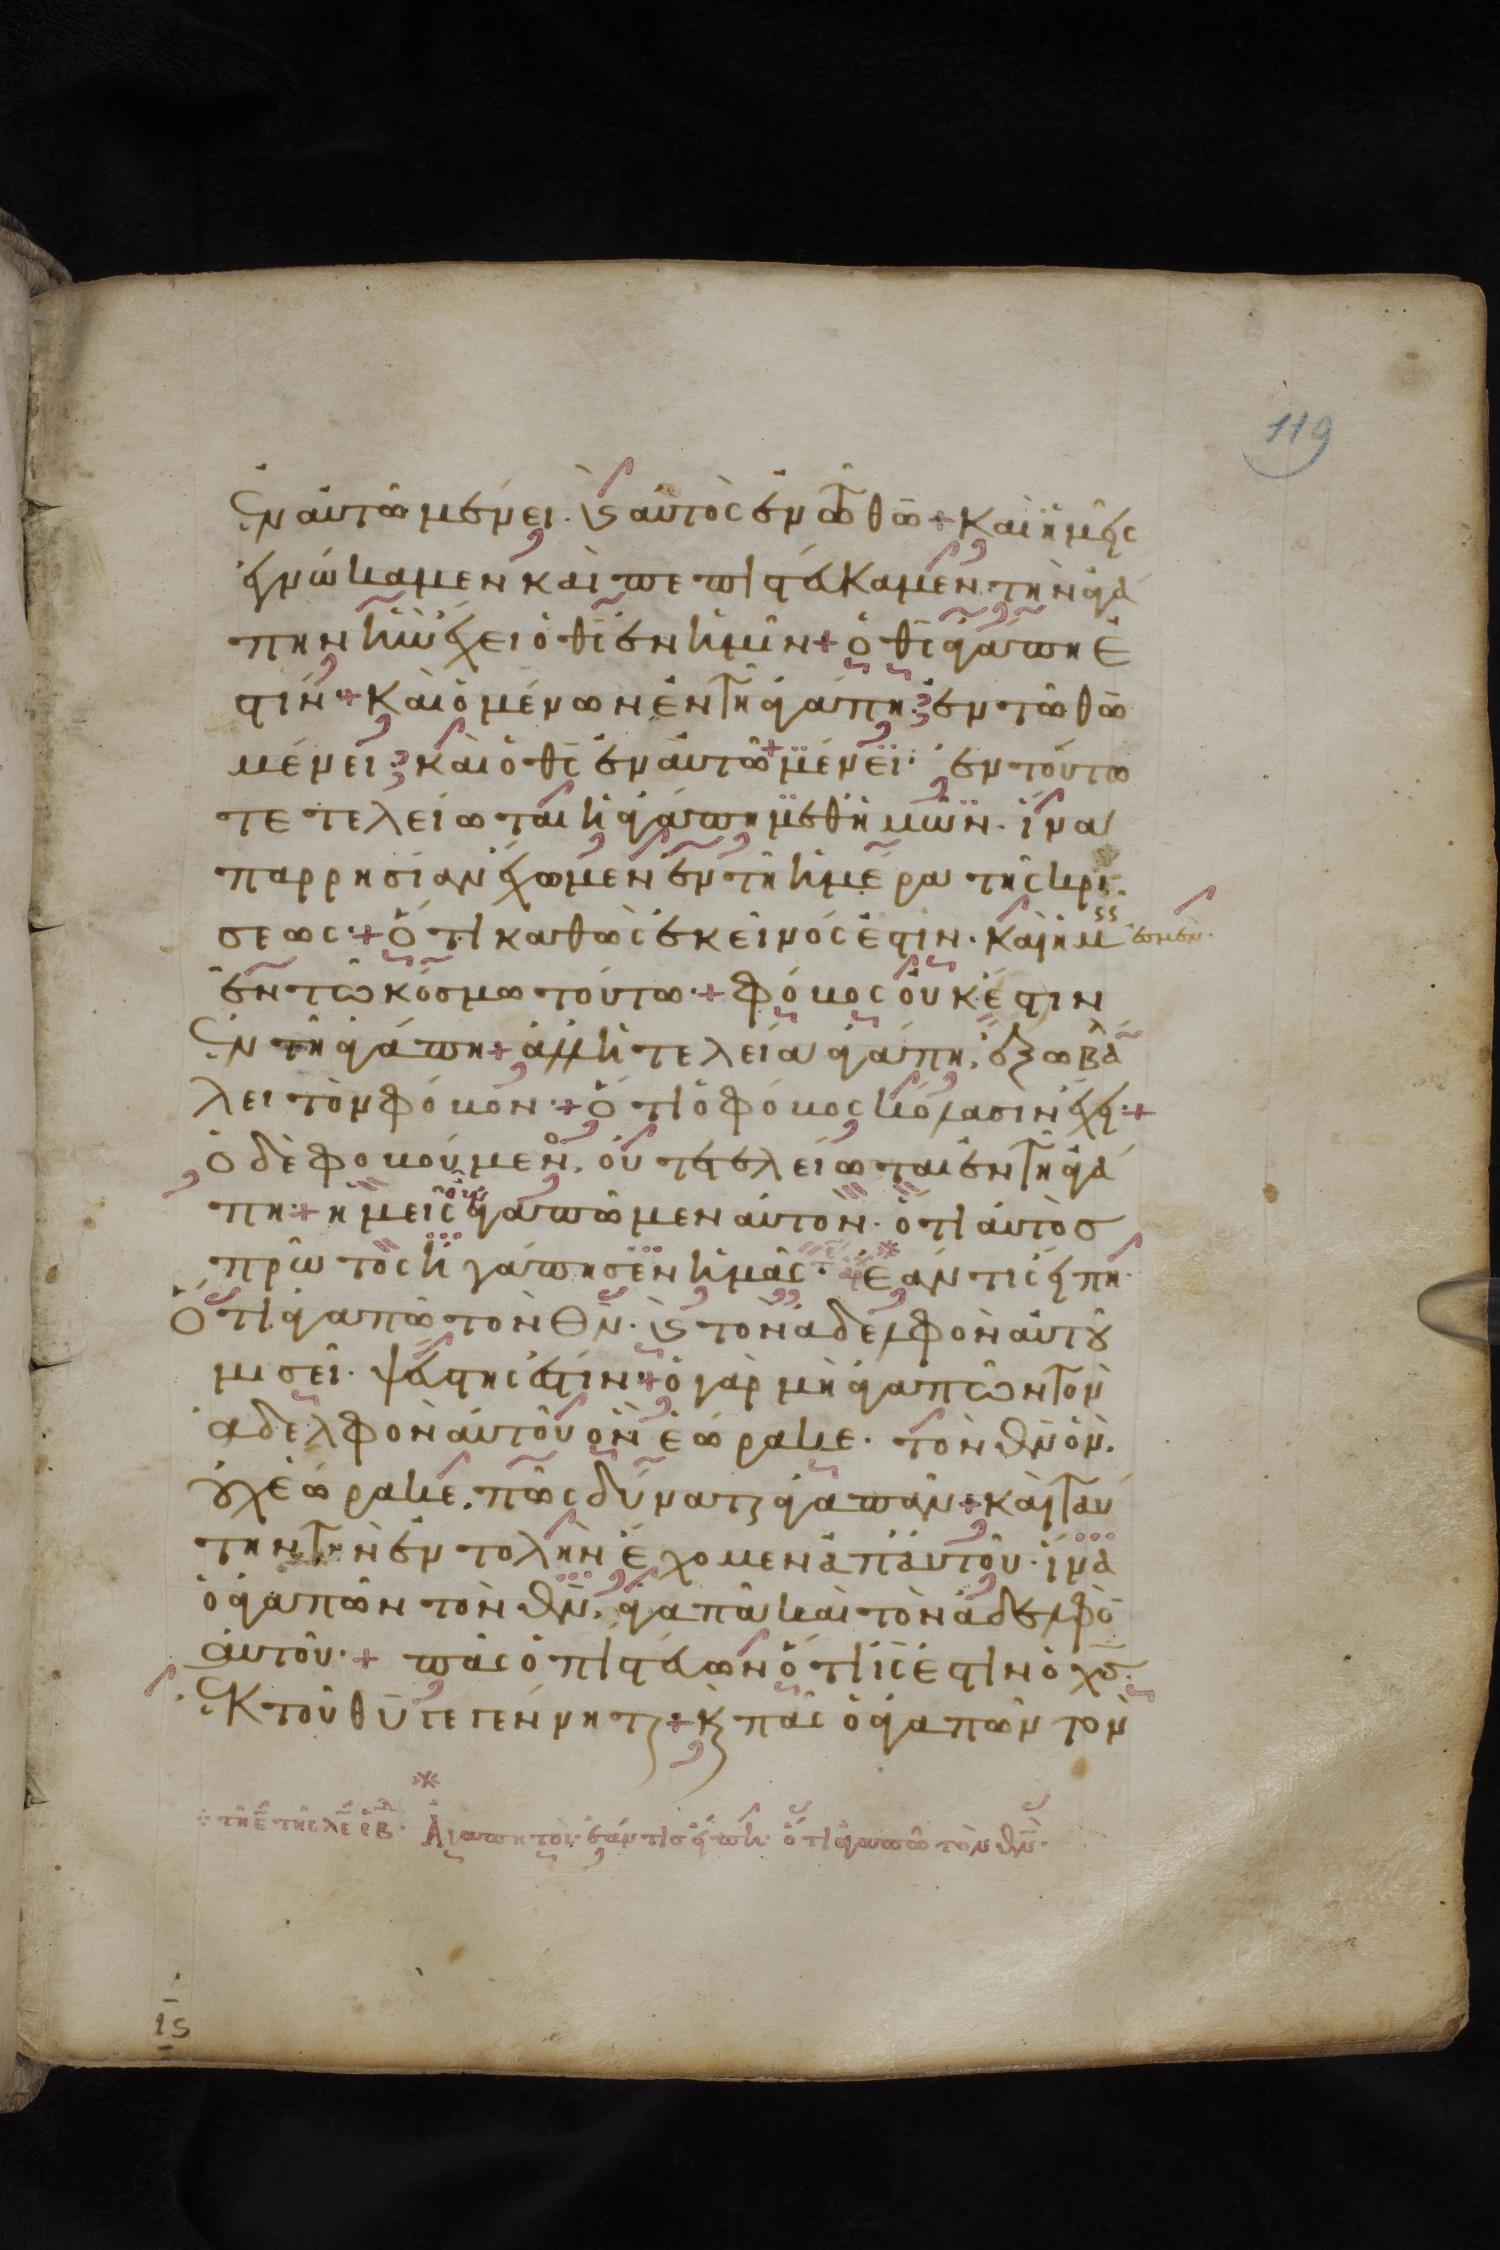 119
ἐν αὐτῶ μένει. καὶ αὐτὸς ἐν τῶ θῶ + Καὶ ἡμεῖς
ἐγνώκαμεν καὶ πεπιστεύκαμεν τὴν ἀγά
πην ἣν ἔχει ὁ θς ἐν ἡμῖν + ὁ θς ἀγάπη ἐ
στίν + Καὶ ὁ μένων ἐν τῆ ἀγάπη. ἐν τῶ θῶ
μένει. καὶ ὁ θς ἐν αὐτῶ μένει. ἐν τούτω
τετελείωται ἡ ἀγάπη μεθ ἡμῶν. ἵνα
παρρησίαν ἔχωμεν ἐν τῆ ἡμέρα τῆς κρί
σεως. + Ὅτι καθὼς ἐκεῖνός ἐστιν. καὶ ἡμ ἐσμεν.
ἐν τῶ κόσμω τούτω. + Φόβος οὐκ ἔστιν
ἐν τῆ ἀγάπη + ἀλλ ἡ τελεία ἀγάπη, ἔξω βάλ
λει τὸν φόβον. + Ὅτι ὁ φόβος κόλασιν ἔχει. +
Ὁ δὲ φοβούμενο, οὐ τετελείωται ἐν τῆ ἀγά
πη + ἡμεῖς οὖν ἀγαπῶμεν αὐτόν. ὅτι αὐτὸσ
πρῶτος ἠγάπησεν ἡμᾶς. Ἐάν τις εἴπη.
Ὅτι ἀγαπῶ τὸν Θν. καὶ τὸν ἀδελφὸν αὐτοῦ
μισεῖ. ψεύστης ἐστίν + ὁ γὰρ μὴ ἀγαπῶν τὸν
ἀδελφὸν αὐτοῦ ὃν ἑώρακε. τὸν θν ὃν.
οὐχ ἑώρακε, πῶς δύναται ἀγαπᾶν + καὶ ταύ
την τὴν ἐντολὴν ἔχομεν ἀπ αὐτοῦ. ἵνα
ὁ ἀγαπῶν τὸν θν, ἀγαπᾶ καὶ τὸν ἀδελφὸ
αὐτοῦ. + πᾶς ὁ πιστεύων ὅτι ις ἐστιν ὁ χσ.
ἐκ τοῦ θυ γεγέννηται + καὶ πᾶς ὁ ἀγαπῶν τὸν
τῆ ε τῆς λε ἑβ. Ἀγαπητοί. ἐάν τισ εἴπη. ὅτι ἀγαπῶ τὸν θν.
ις